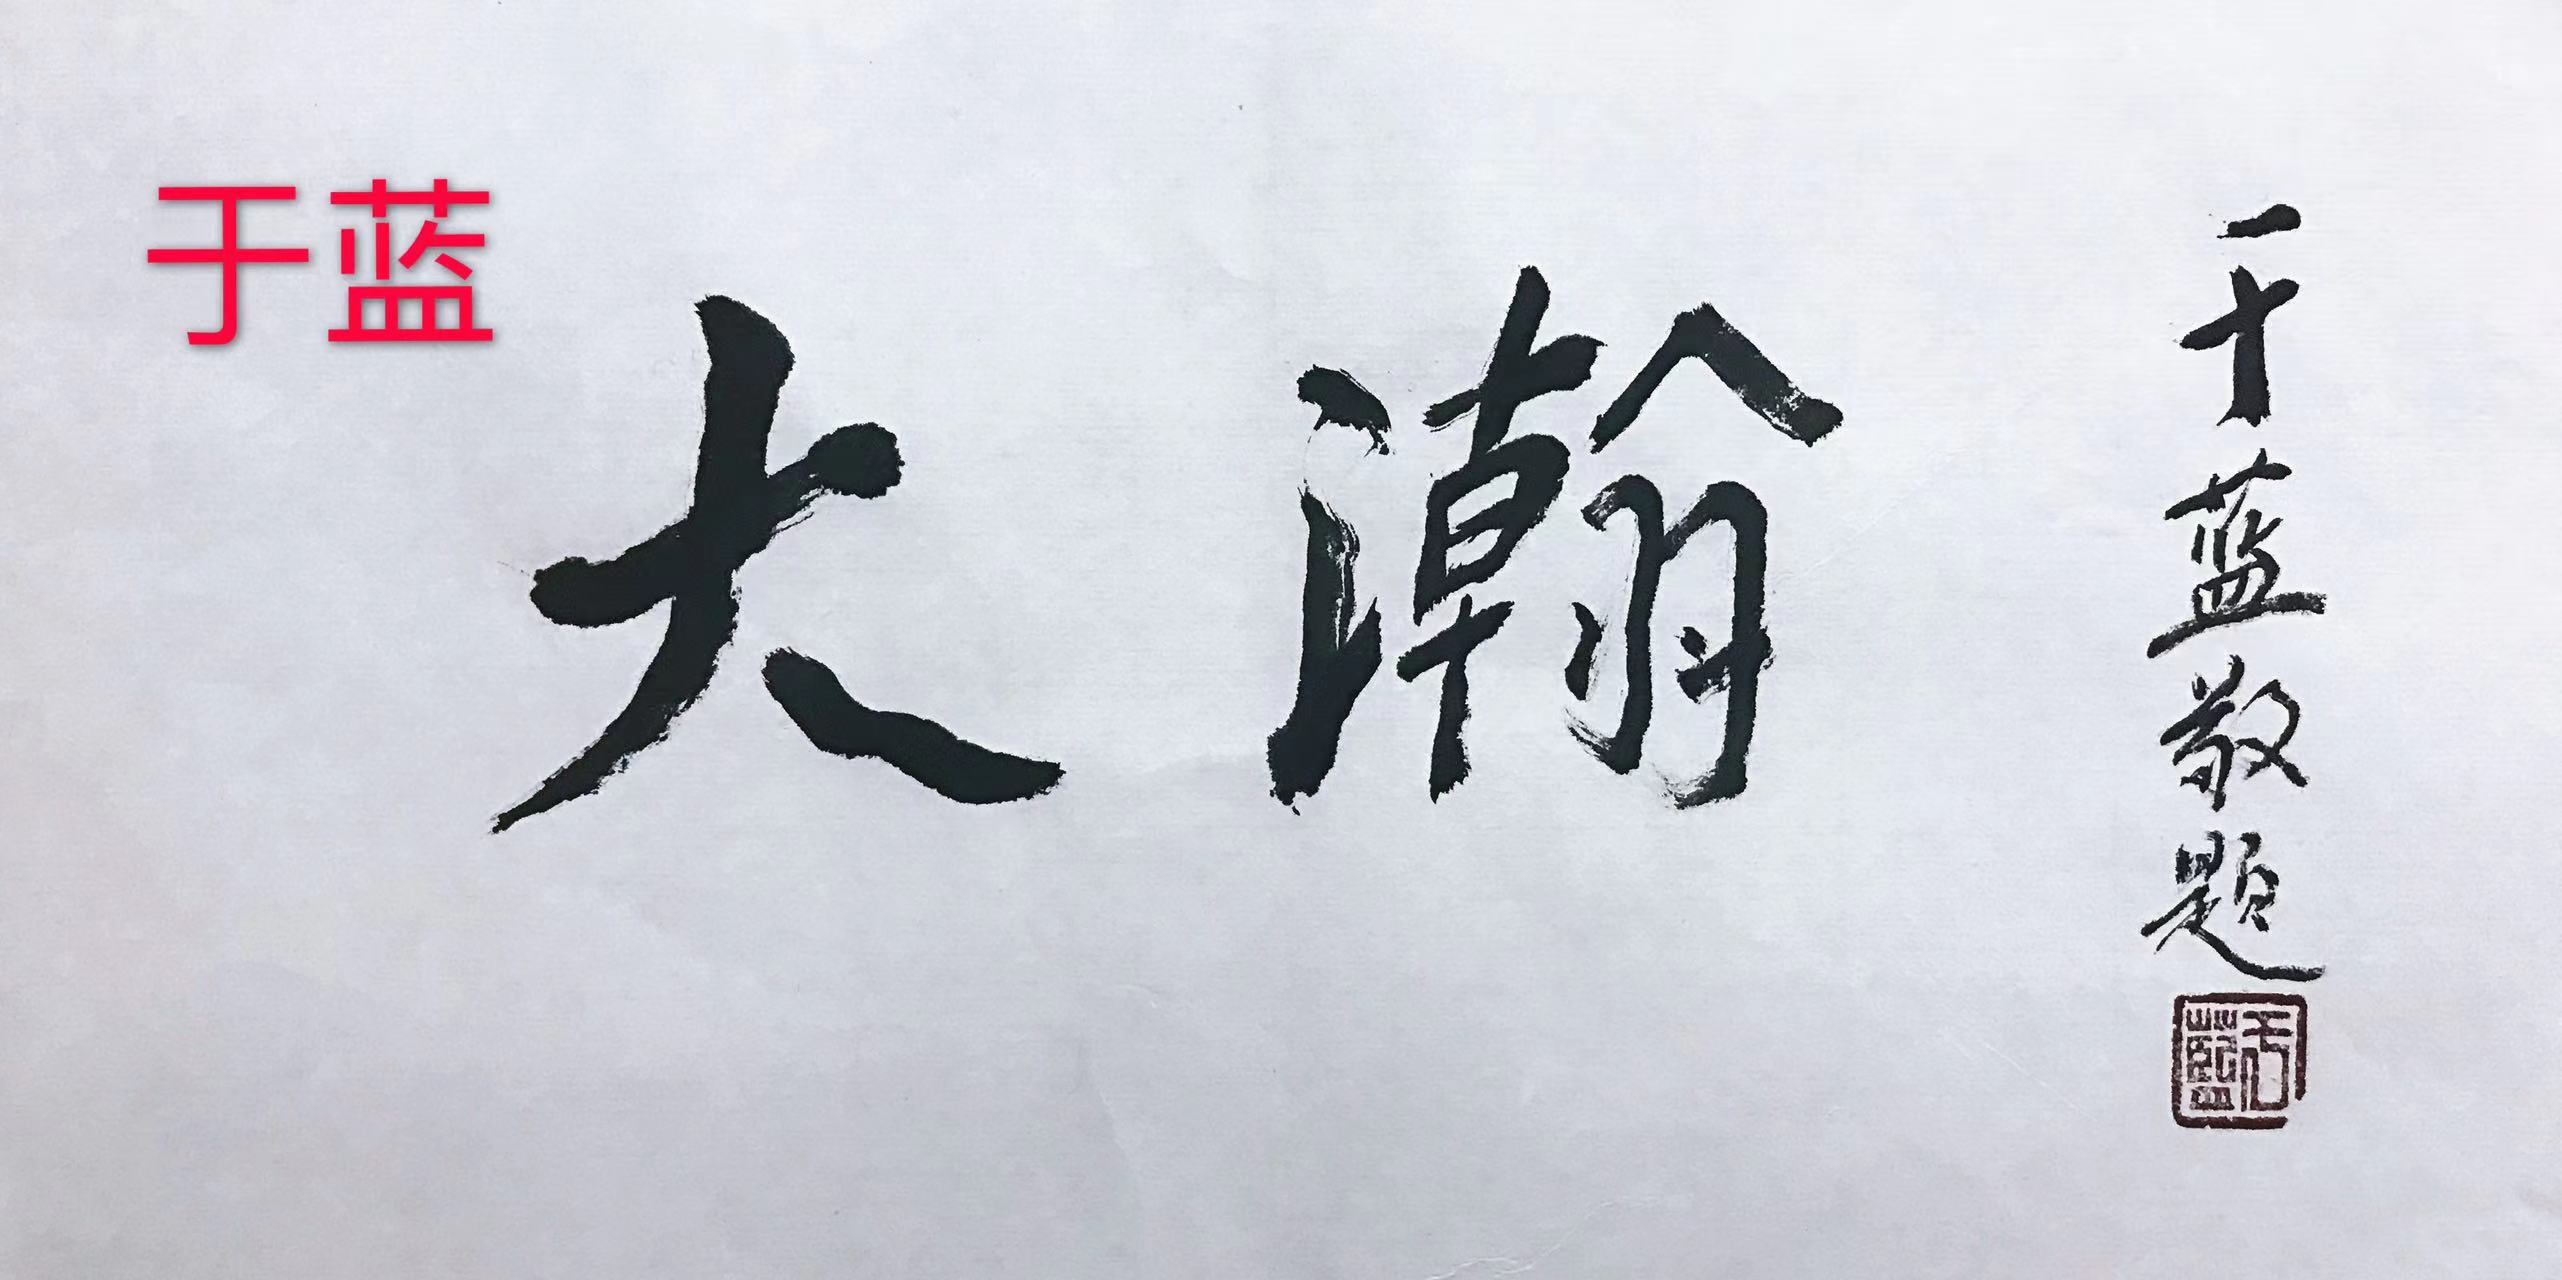 于蓝
大瀚
于蓝敬题
于藍